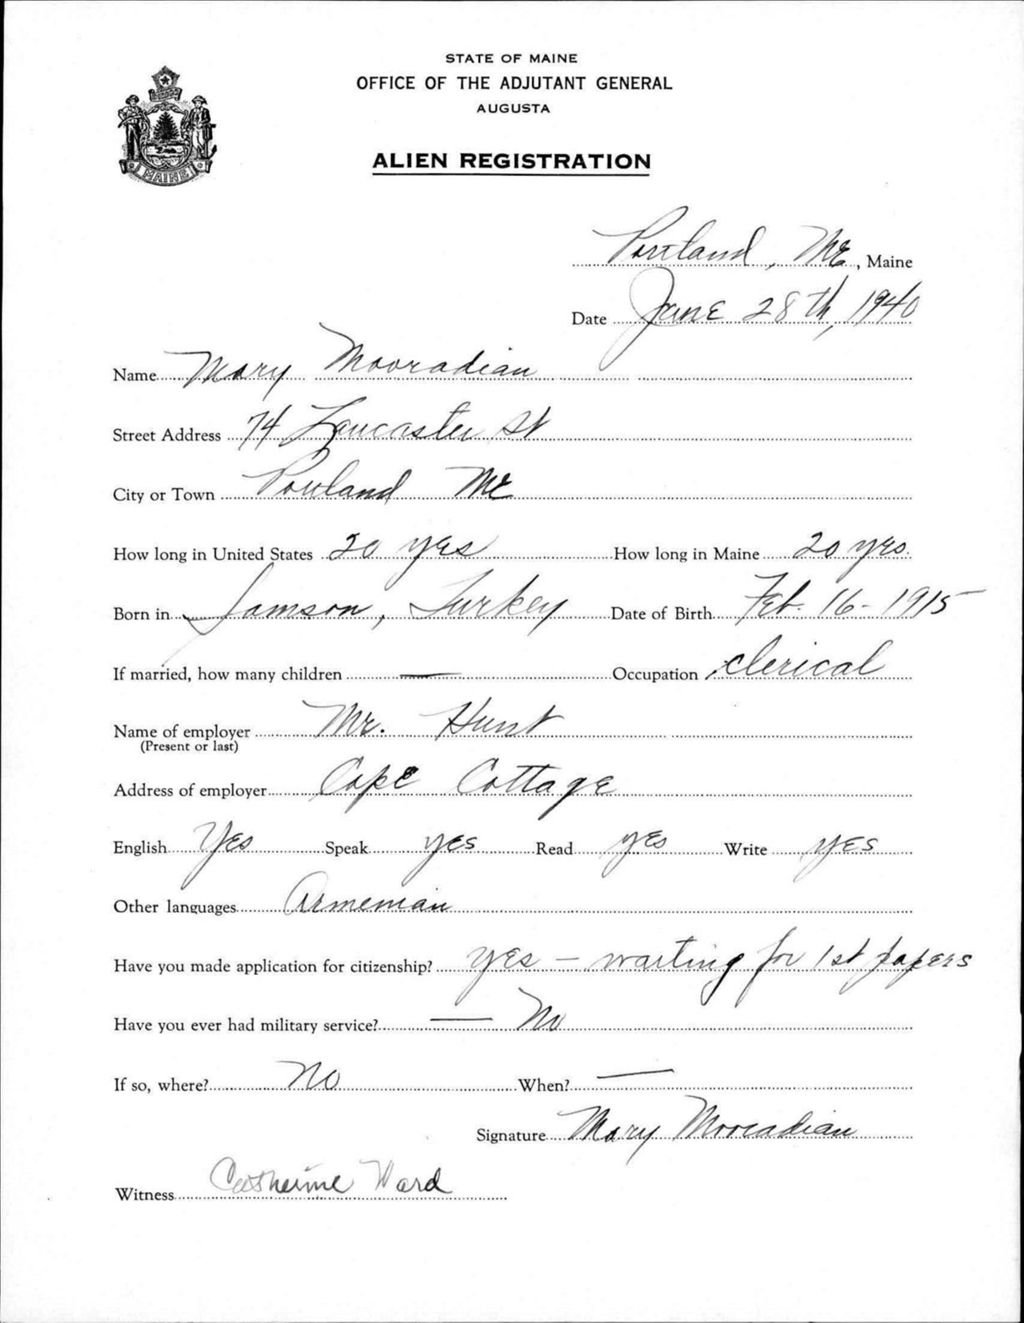 STATE OF MAINE
OFFICE OF THE ADJUTANT GENERAL
AUGUSTA
ALIEN REGISTRATION
MAINE
Portland, Me, Maine
Date June 28th, 1940
Name Mary Mooradian
Street Address 74 Lancaster St
City or Town Portland Me
How long in United States 20 yrs How long in Maine 20 yrs.
Born in Samson, Turkey Date of Birth Feb. 16 - 1915
If married, how many children — Occupation clerical
Name of employer Mr. Hunt
(Present or last)
Address of employer Cape Cottage
English Yes Speak yes Read yes Write yes
Other languages Armenian
Have you made application for citizenship? yes — waiting for 1st papers
Have you ever had military service? — No
If so, where? No When? —
Signature Mary Mooradian
Witness Catherine Ward